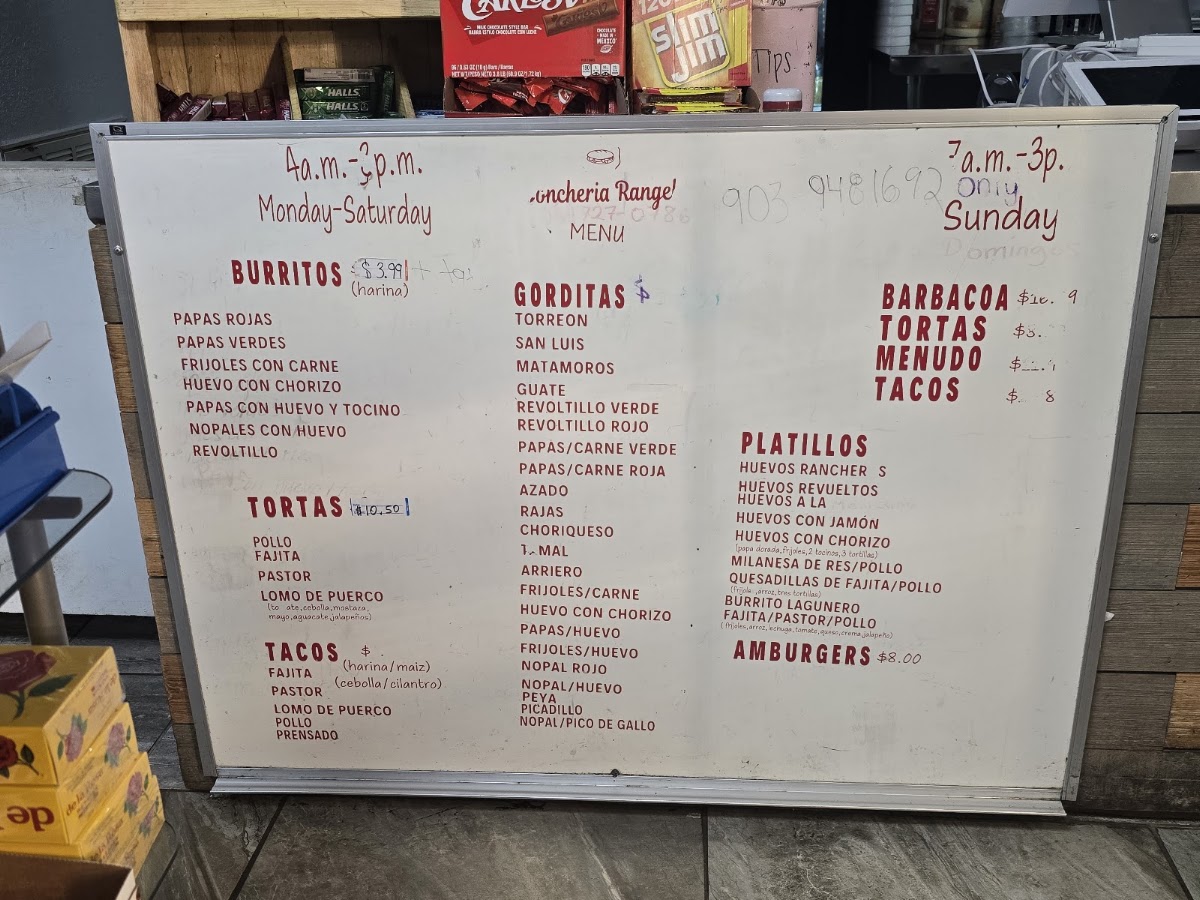 MILK CHOCOLATE STYLE BAR
HALLS
HALLS
slim
Jim
TIPS
4a.m.-3p.m.
Monday-Saturday
BURRITOS $3.99
(harina)
PAPAS ROJAS
PAPAS VERDES
FRIJOLES CON CARNE
HUEVO CON CHORIZO
PAPAS CON HUEVO Y TOCINO
NOPALES CON HUEVO
REVOLTILLO
TORTAS $10.50
POLLO
FAJITA
PASTOR
LOMO DE PUERCO
(to ate,cebolla,mostaza,
mayo,aguacate,jalapeños)
TACOS $
(harina/maiz)
FAJITA
(cebolla/cilantro)
PASTOR
LOMO DE PUERCO
POLLO
PRENSADO
oncheria Rangel
727-0786
MENU
GORDITAS $
TORREON
SAN LUIS
MATAMOROS
GUATE
REVOLTILLO VERDE
REVOLTILLO ROJO
PAPAS/CARNE VERDE
PAPAS/CARNE ROJA
AZADO
RAJAS
CHORIQUESO
T MAL
ARRIERO
FRIJOLES/CARNE
HUEVO CON CHORIZO
PAPAS/HUEVO
FRIJOLES/HUEVO
NOPAL ROJO
NOPAL/HUEVO
PEYA
PICADILLO
NOPAL/PICO DE GALLO
903 9481692
7a.m.-3p.
Only
Sunday
Domingos
BARBACOA
TORTAS
MENUDO
TACOS
PLATILLOS
HUEVOS RANCHER S
HUEVOS REVUELTOS
HUEVOS A LA
HUEVOS CON JAMÓN
HUEVOS CON CHORIZO
(papa dorada,frijoles,2 tocinos,3 tortillas)
MILANESA DE RES/POLLO
QUESADILLAS DE FAJITA/POLLO
(frijoles,arroz,tres tortillas)
BURRITO LAGUNERO
FAJITA/PASTOR/POLLO
(frijoles,arroz,lechuga,tomate,queso,crema,jalapeño)
AMBURGERS $8.00
de